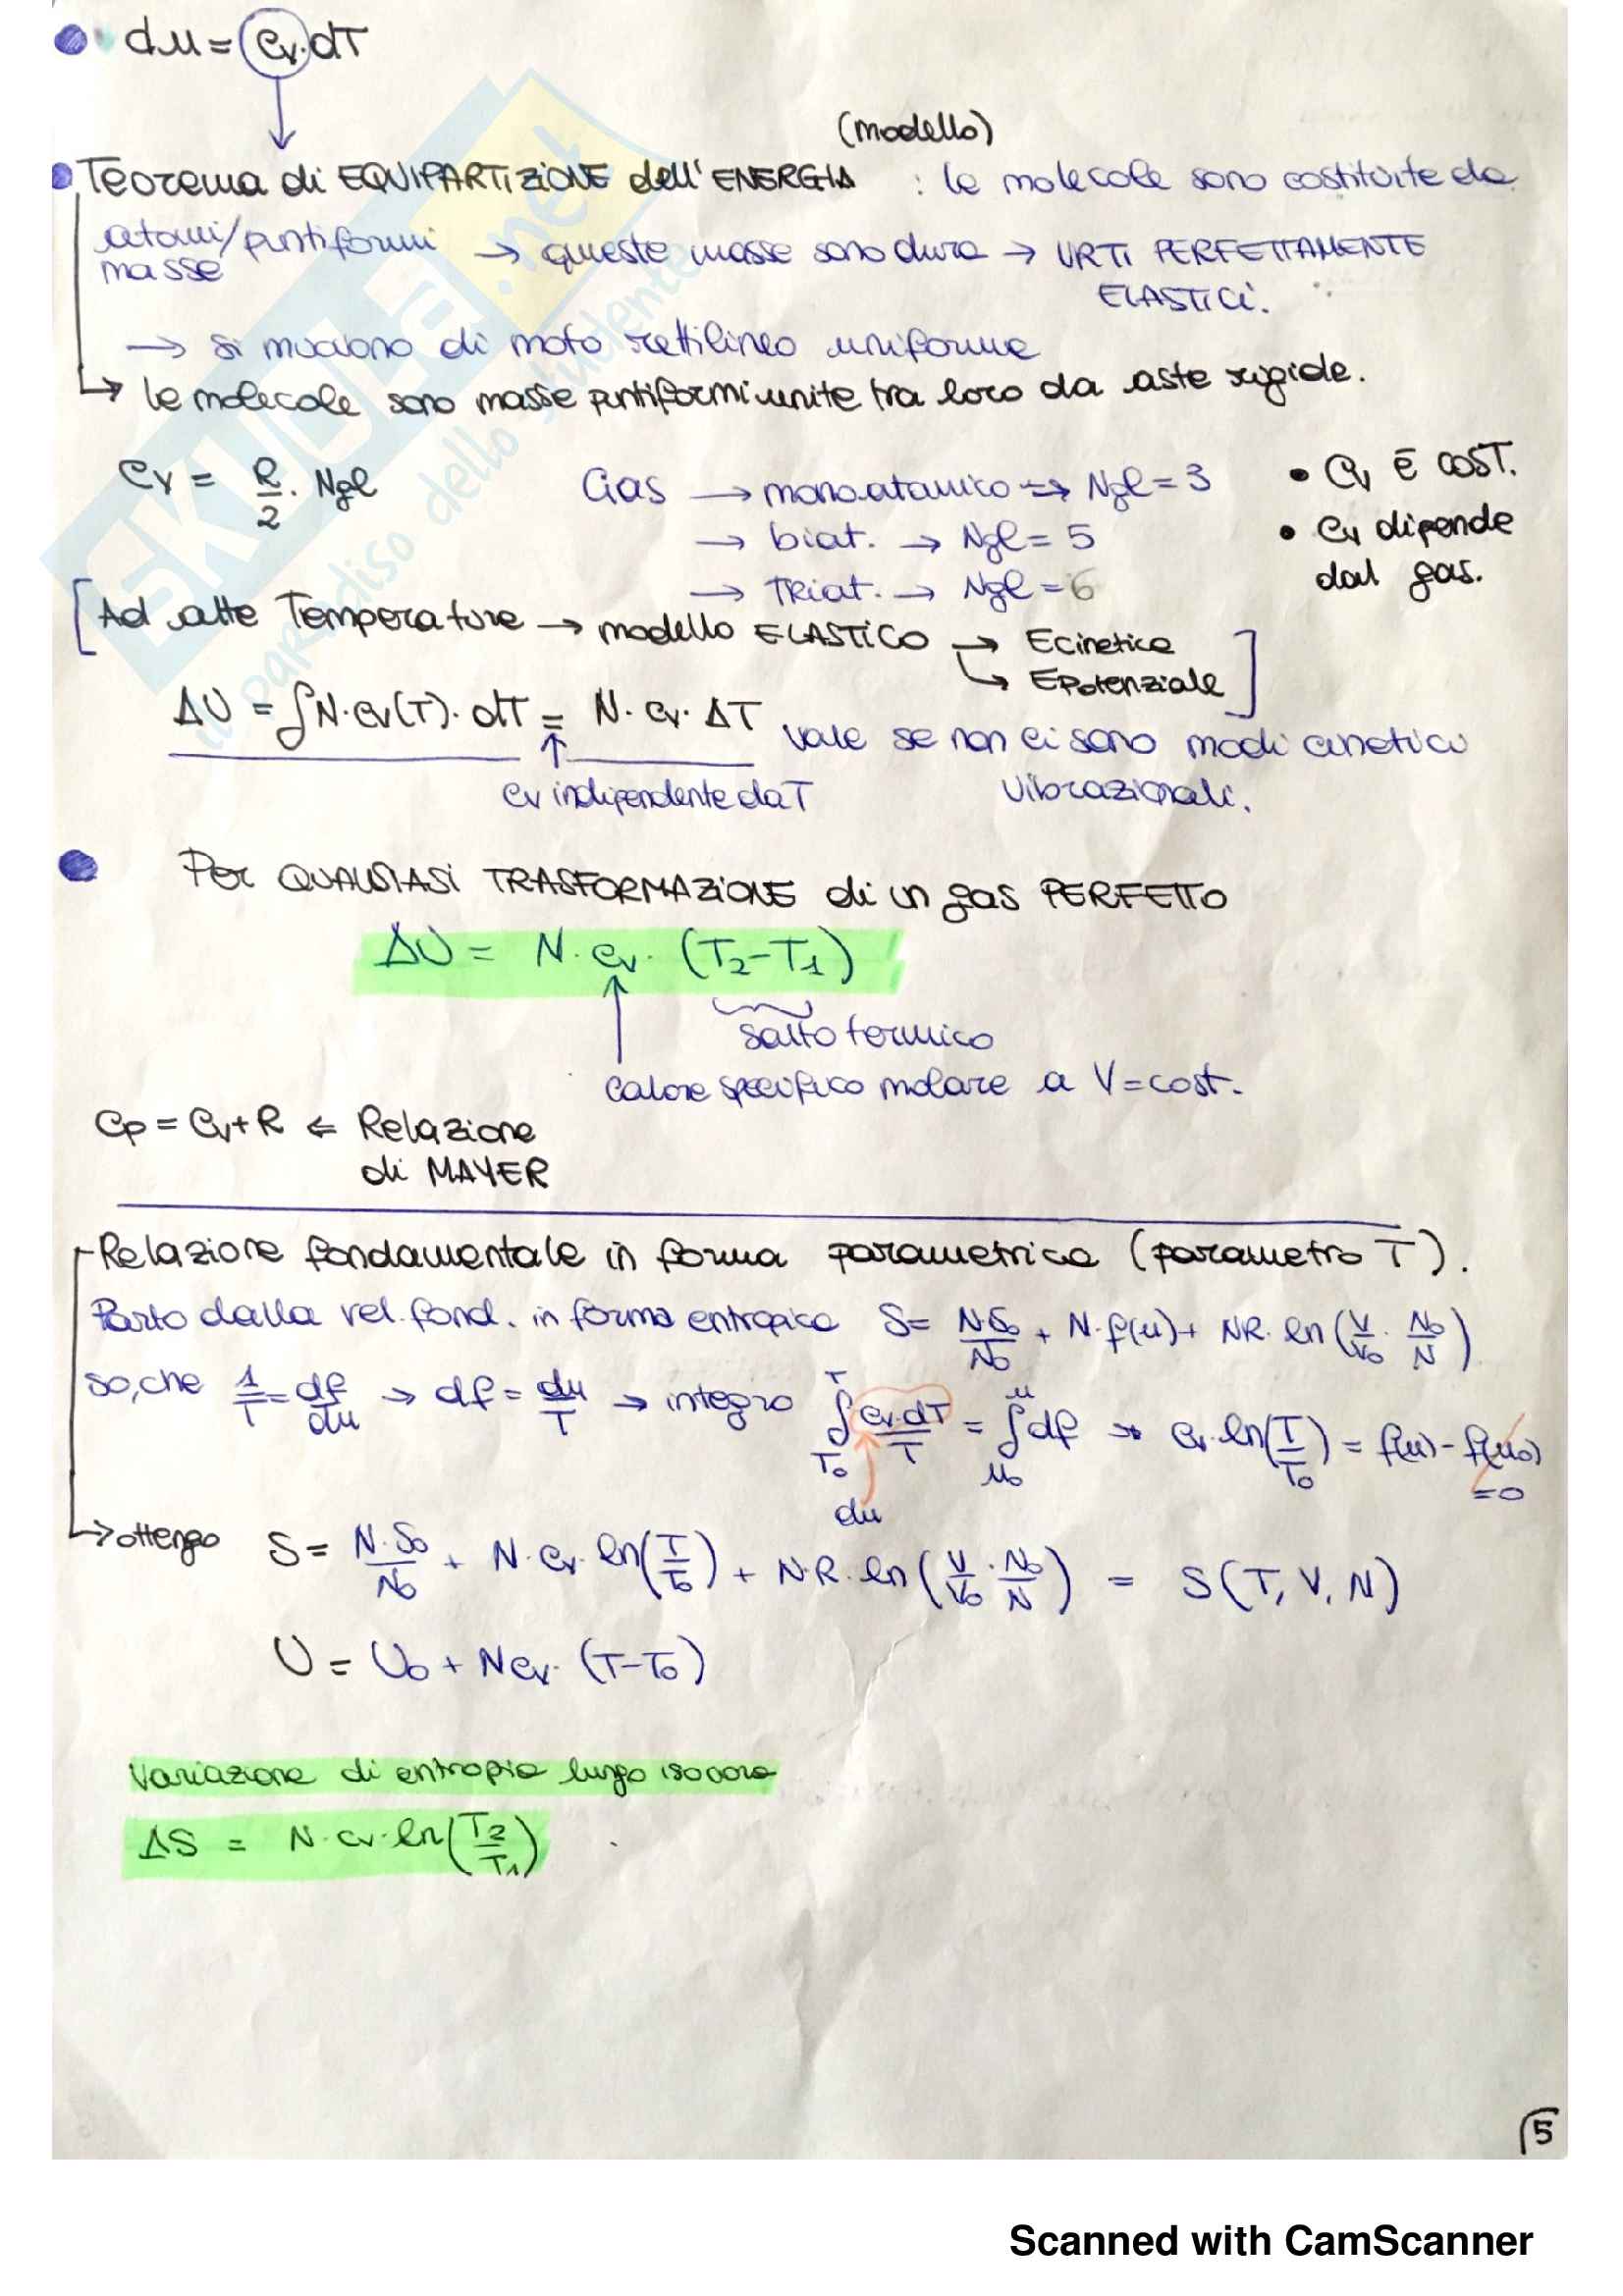 du = cv·dT
(modello)
Teorema di EQUIPARTIZIONE dell'ENERGIA : le molecole sono costituite da
atomi/puntiformi → queste masse sono dure → URTI PERFETTAMENTE
masse
ELASTICI.
→ si muovono di moto rettilineo uniforme
↳ le molecole sono masse puntiformi unite tra loro da aste rigide.
cv = R/2 · Ngl
Gas → monoatomico → Ngl = 3
→ biat. → Ngl = 5
→ TRiat. → Ngl = 6
• cv è COST.
• cv dipende
dal gas.
[Ad alte Temperature → modello ELASTICO → Ecinetica
↳ Epotenziale]
ΔU = ∫N·cv(T)·dT = N·cv·ΔT vale se non ci sono modi cinetici
↑
cv indipendente da T
vibrazionali.
Per QUALSIASI TRASFORMAZIONE di un gas PERFETTO
ΔU = N·cv·(T2-T1)
salto termico
calore specifico molare a V=cost.
Cp = Cv+R ⇐ Relazione
di MAYER
Relazione fondamentale in forma parametrica (parametro T).
Parto dalla rel. fond. in forma entropica S = N·S0/N0 + N·f(u) + NR·ln(V/V0 · N0/N)
so, che 1/T = df/du → df = du/T → integro ∫T0^T cv·dT/T = ∫u0^u df → cv·ln(T/T0) = f(u) - f(u0)
=0
du
↳ ottengo S = N·S0/N0 + N·cv·ln(T/T0) + N·R·ln(V/V0 · N0/N) = S(T, V, N)
U = U0 + Ncv·(T-T0)
Variazione di entropia lungo isocora
ΔS = N·cv·ln(T2/T1)
5
SKUOLA.net
il paradiso dello studente
Scanned with CamScanner